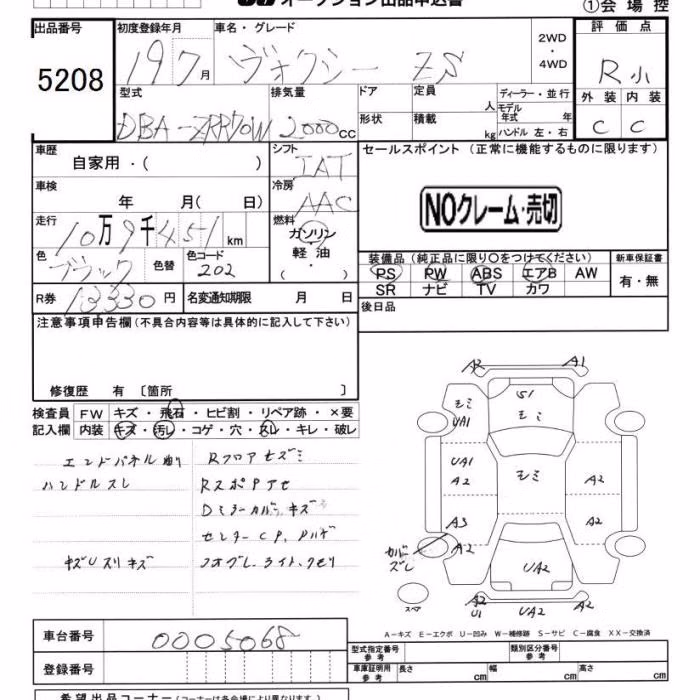 オークション出品申込書
①会場控
出品番号
5208
初度登録年月
19 7月
車名・グレード
ヴォクシー ZS
2WD
・
4WD
評価点
R小
外装 内装
C C
型式
DBA-ZRR70W
排気量
2000cc
ドア
形状
定員
人
積載
kg
ディーラー・並行
モデル年式 年
ハンドル 左・右
車歴
自家用・( )
シフト
IAT
車検
年 月( 日)
冷房
AAC
走行
10万9千451km
燃料
ガソリン
・
軽油
・
( )
色
ブラック
色替
色コード
202
R券 13330円
名変通知期限 月 日
セールスポイント(正常に機能するものに限ります)
NOクレーム・売切
装備品(純正品に限り○をつけてください)
PS PW ABS エアB AW
SR ナビ TV カワ
新車保証書
有・無
後日品
注意事項申告欄(不具合内容等は具体的に記入して下さい)
修復歴 有 〔箇所 〕
検査員
記入欄
FW キズ・飛石・ヒビ割・リペア跡・×要
内装 キズ・汚レ・コゲ・穴・スレ・キレ・破レ
エンドパネル
Rフロア
ハンドルスレ
キズUスリキズ
A2 A1
S1
UA1
UA1
A2 A2
A3 A2
A2
カバーズレ
UA2
スペア
A2
U1 UA2 A2
A-キズ E-エクボ U-凹み W-補修跡 S-サビ C-腐食 XX-交換済
車台番号 0005068
登録番号
型式指定番号
参考
類別区分番号
参考
車庫証明用
参考
長さ cm 幅 cm 高さ cm
希望出品コーナー(コーナーは各会場により異なります。)